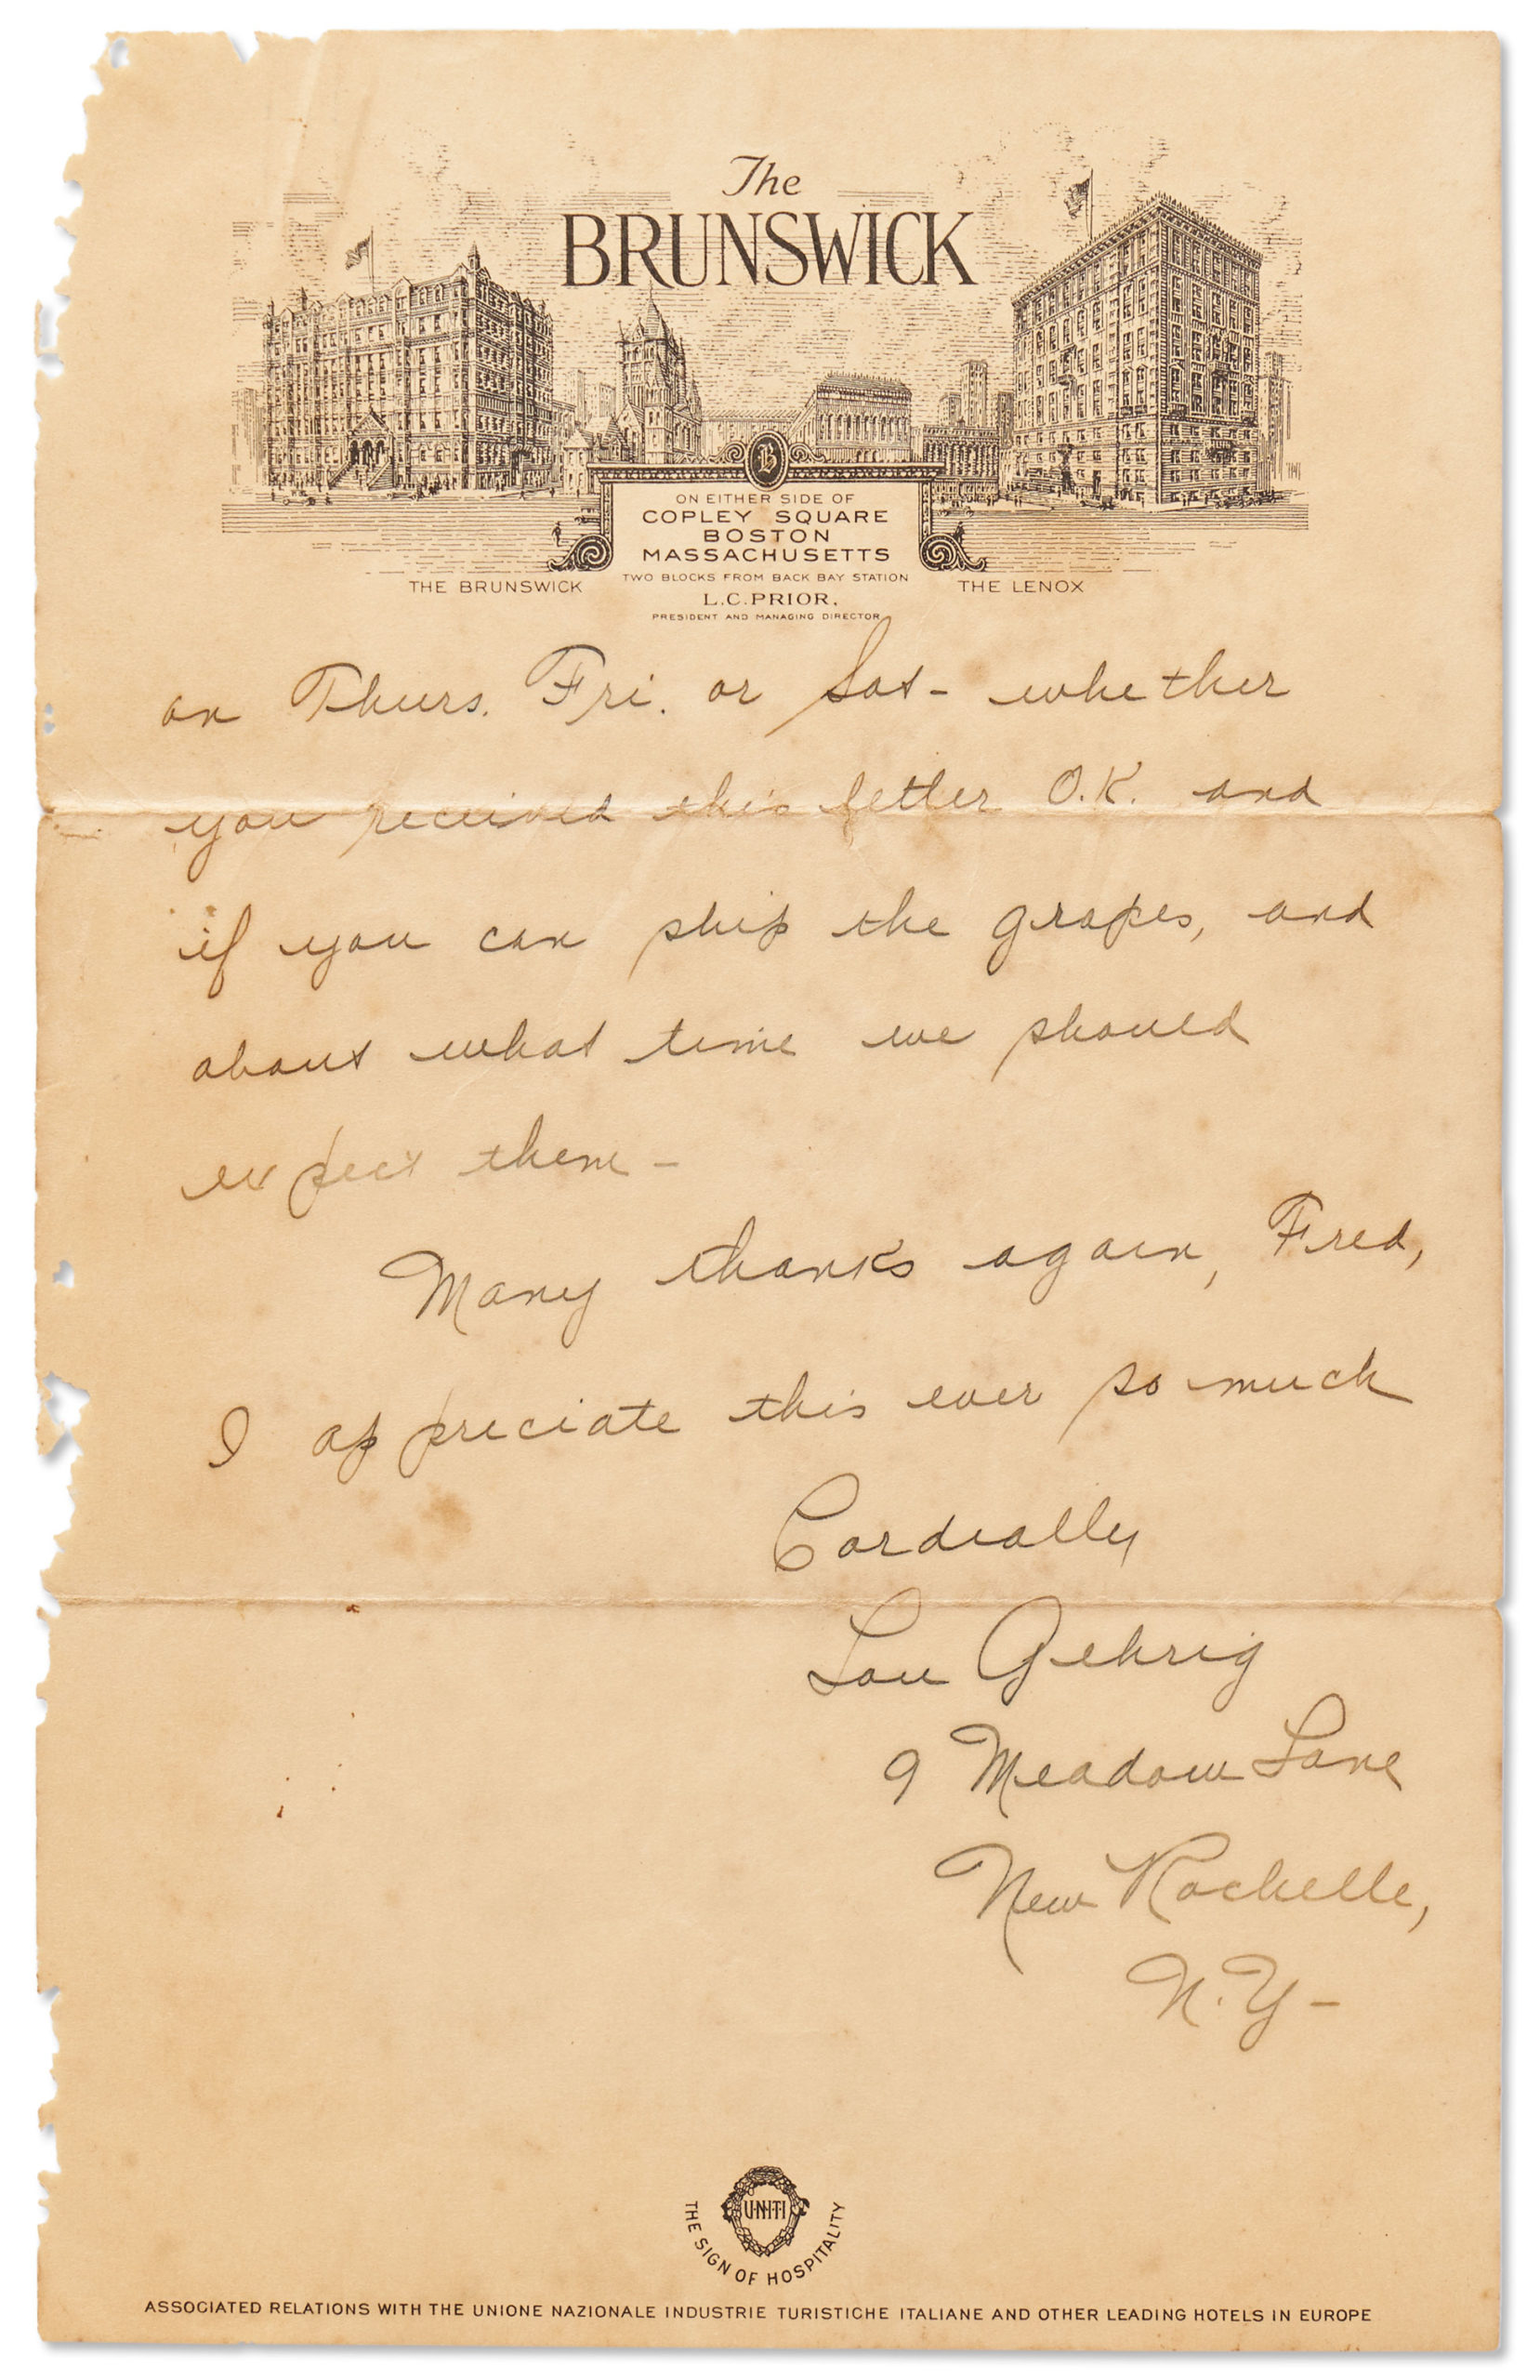 The
BRUNSWICK
B
ON EITHER SIDE OF
COPLEY SQUARE
BOSTON
MASSACHUSETTS
TWO BLOCKS FROM BACK BAY STATION
L.C. PRIOR,
PRESIDENT AND MANAGING DIRECTOR
THE BRUNSWICK
THE LENOX
on Thurs. Fri. or Sat- whether
you received this letter O.K. and
if you can ship the grapes, and
about what time we should
expect them -
Many thanks again, Fred,
I appreciate this ever so much
Cordially
Lou Gehrig
9 Meadow Lane
New Rochelle,
N.Y-
UNITI
THE SIGN OF HOSPITALITY
ASSOCIATED RELATIONS WITH THE UNIONE NAZIONALE INDUSTRIE TURISTICHE ITALIANE AND OTHER LEADING HOTELS IN EUROPE